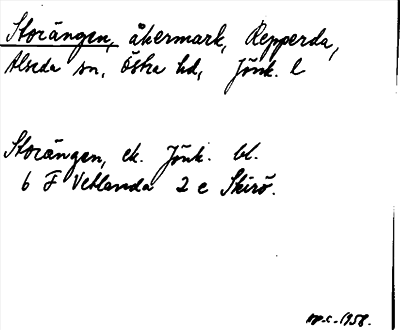 Storängen, åkermark, Repperda,
Alseda sn, Östra hd, Jönk. l
Storängen, ek. Jönk. bl.
6 F Vetlanda 2 e Skirö.
1958.